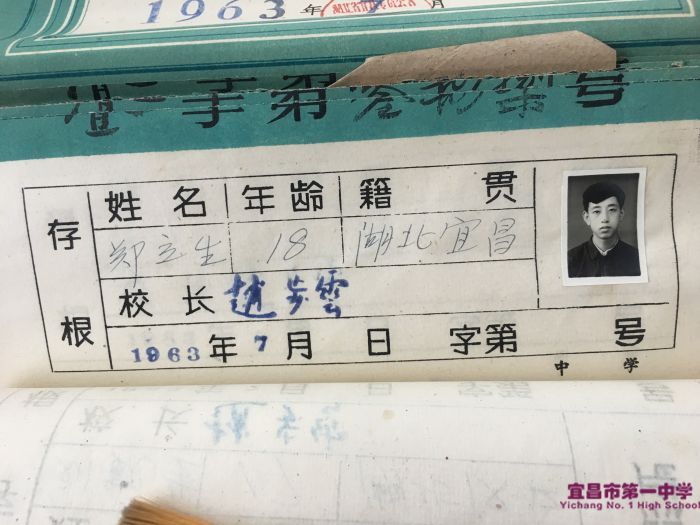 1963年 月
宜 一 字第 号
姓名 年龄 籍贯
存根
郑立生 18 湖北宜昌
校长 趙步雲
1963年7月 日 字第 号
中学
宜昌市第一中学
Yichang No. 1 High School